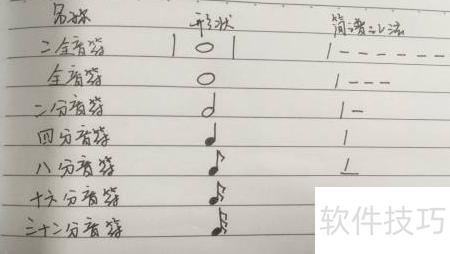 名称 形状 简谱记法
二全音符 | 1 - - - - - - -
全音符 1 - - -
二分音符 1 -
四分音符 1
八分音符 1
十六分音符
三十二分音符
软件技巧